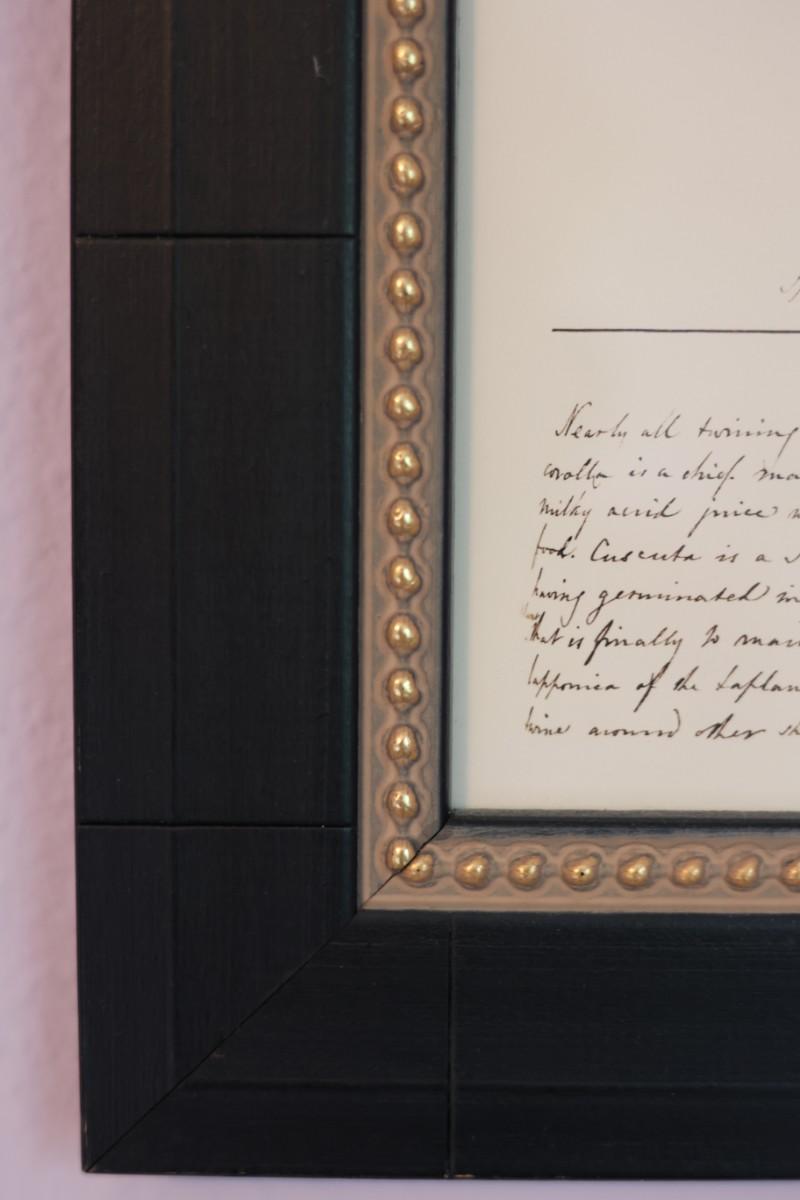 Nearly all twining
corolla is a chief
milky acrid juice
food. Cuscuta is a
having germinated in
that is finally to
lapponica of the Laplan
twine around other sh